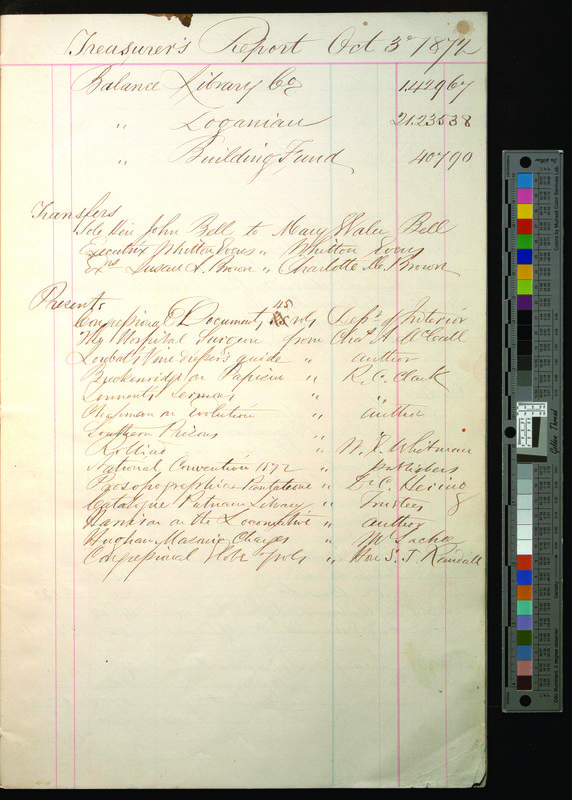 Treasurer's Report Oct 3d 1872
Balance Library Co 142967
" Loganian 2123538
" Building Fund 40790
Transfers
John Bell to Mary Bell
Executrix Whitton Evans " Whitton Evans
Exrs Susan L. Brown " Charlotte M. Brown
Presents
Congressional Document, 45 vols Dept of Interior
My Hospital Surgeon from Chas A. McCall
Loubat's Vine dresser's guide " author
Breckenridge on Papism " R. C. Clark
Sermons " "
Chapman on Evolution " author
Southern Prisons " "
Rolliad " W. R. Whitman
National Convention 1872 " publishers
Prosopographica Pantatione " Dr C. Hering
Catalogue Putnam Library " Trustees
Harrison on the Locomotive " author
Masonic Charges "
Congressional Globe vols " Hon S. J. Randall